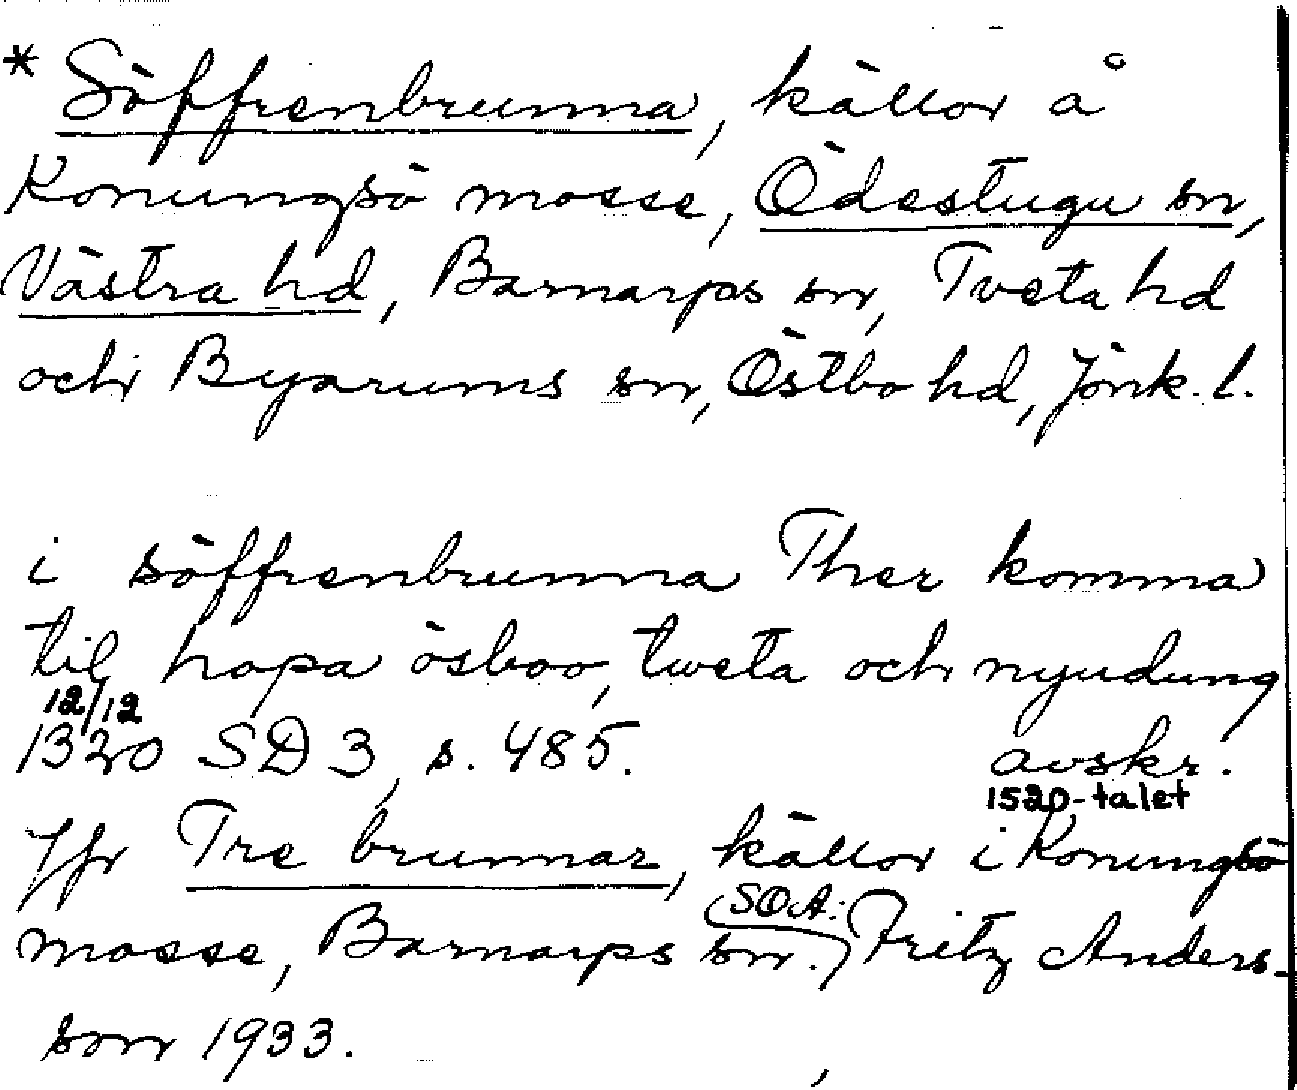 * Söffrenbrunna, källor å
Konungsö mosse, Ödestugu sn,
Västra hd, Barnarps sn, Tveta hd
och Byarums sn, Östbo hd, Jönk. l.
i söffrenbrunna Ther komma
til hopa ösboo, tweta och nyudung
12/12
1320 SD 3, s. 485. avskr.
1520-talet
Jfr Tre brunnar, källor i Konungsö
mosse, Barnarps sn. SOA: Fritz Anders-
son 1933.